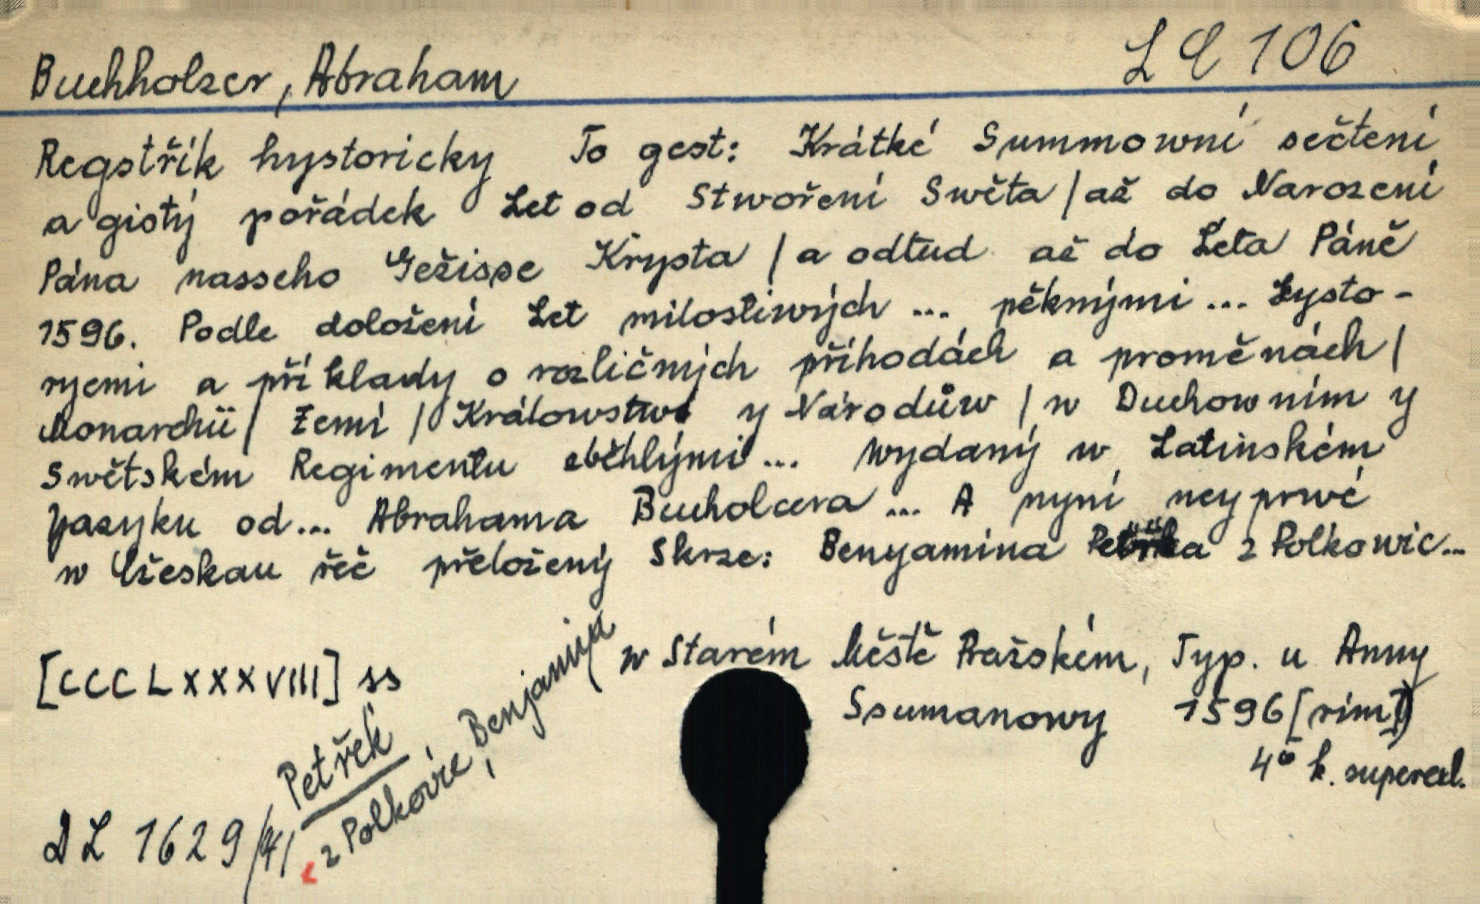 Buchholzer, Abraham
L E 106
Regstřík hystoricky To gest: Krátké Summowní sečtení
a gistý pořádek Let od Stwoření Swěta / až do Narození
Pána nasseho Gežisse Krysta / a odtud až do Léta Páně
1596. Podle doložení Let milostiwých ... pěknými ... Hysto-
ryemi a příklady o rozličných příhodách a proměnách /
Monarchii / Zemí / Králowstwí y Národůw / w Duchowním y
Swětském Regimentu zběhlými ... wydaný w Latinském
Jazyku od ... Abrahama Bucholcera ... A nyní neyprwé
w Cžeskau řeč přeložený Skrze: Benyamina Petřka z Polkowic ...
w Starém Městě Pražském, Typ. u Anny
[CCCLXXXVIII] ss
Ssumanowy 1596 [rim]
4° k. superexl.
Petřek
z Polkovic, Benjamin
DL 1629/41